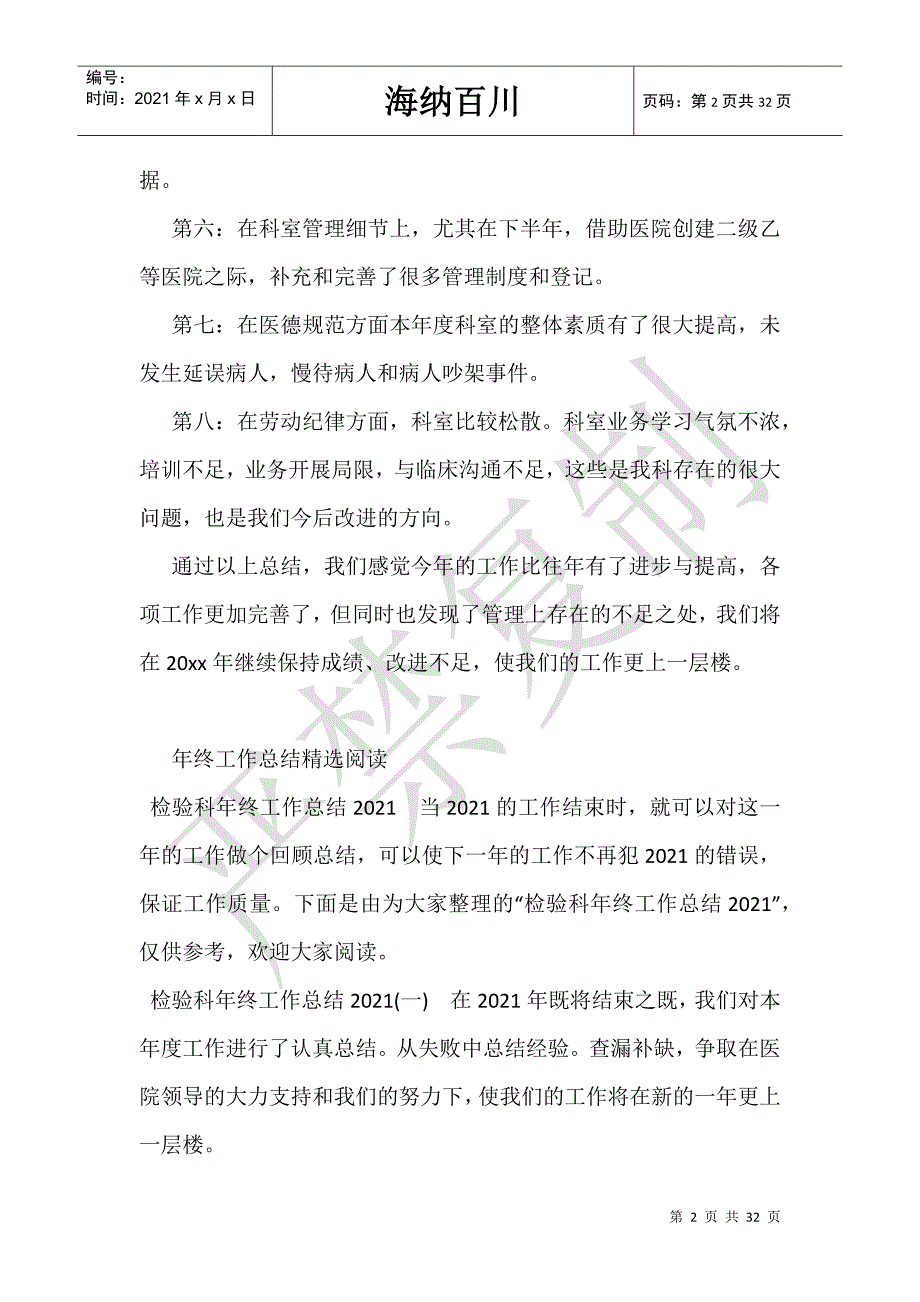 编号：
时间：2021年x月x日
海纳百川
页码：第2页共32页
据。
第六：在科室管理细节上，尤其在下半年，借助医院创建二级乙
等医院之际，补充和完善了很多管理制度和登记。
第七：在医德规范方面本年度科室的整体素质有了很大提高，未
发生延误病人，慢待病人和病人吵架事件。
第八：在劳动纪律方面，科室比较松散。科室业务学习气氛不浓，
培训不足，业务开展局限，与临床沟通不足，这些是我科存在的很大
问题，也是我们今后改进的方向。
通过以上总结，我们感觉今年的工作比往年有了进步与提高，各
项工作更加完善了，但同时也发现了管理上存在的不足之处，我们将
在20xx年继续保持成绩、改进不足，使我们的工作更上一层楼。
年终工作总结精选阅读
检验科年终工作总结2021 当2021的工作结束时，就可以对这一
年的工作做个回顾总结，可以使下一年的工作不再犯2021的错误，
保证工作质量。下面是由为大家整理的“检验科年终工作总结2021”，
仅供参考，欢迎大家阅读。
检验科年终工作总结2021(一) 在2021年既将结束之既，我们对本
年度工作进行了认真总结。从失败中总结经验。查漏补缺，争取在医
院领导的大力支持和我们的努力下，使我们的工作将在新的一年更上
一层楼。
严禁复制
第 2 页 共 32 页